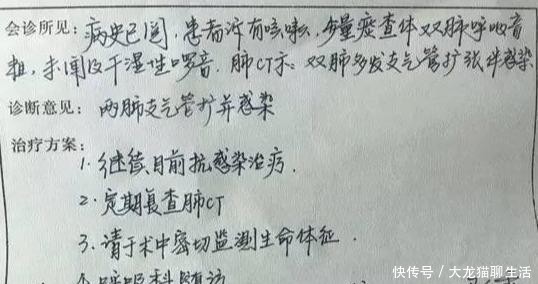 会诊所见：病史已阅，患者诉有咳嗽，少量痰查体双肺呼吸音
粗，未闻及干湿性啰音。肺CT示：双肺多发支气管扩张伴感染
诊断意见：两肺支气管扩并感染
治疗方案：
1. 继续目前抗感染治疗.
2. 定期复查肺CT
3. 请于术中密切监测生命体征.
呼吸科随访
快传号／大龙猫聊生活